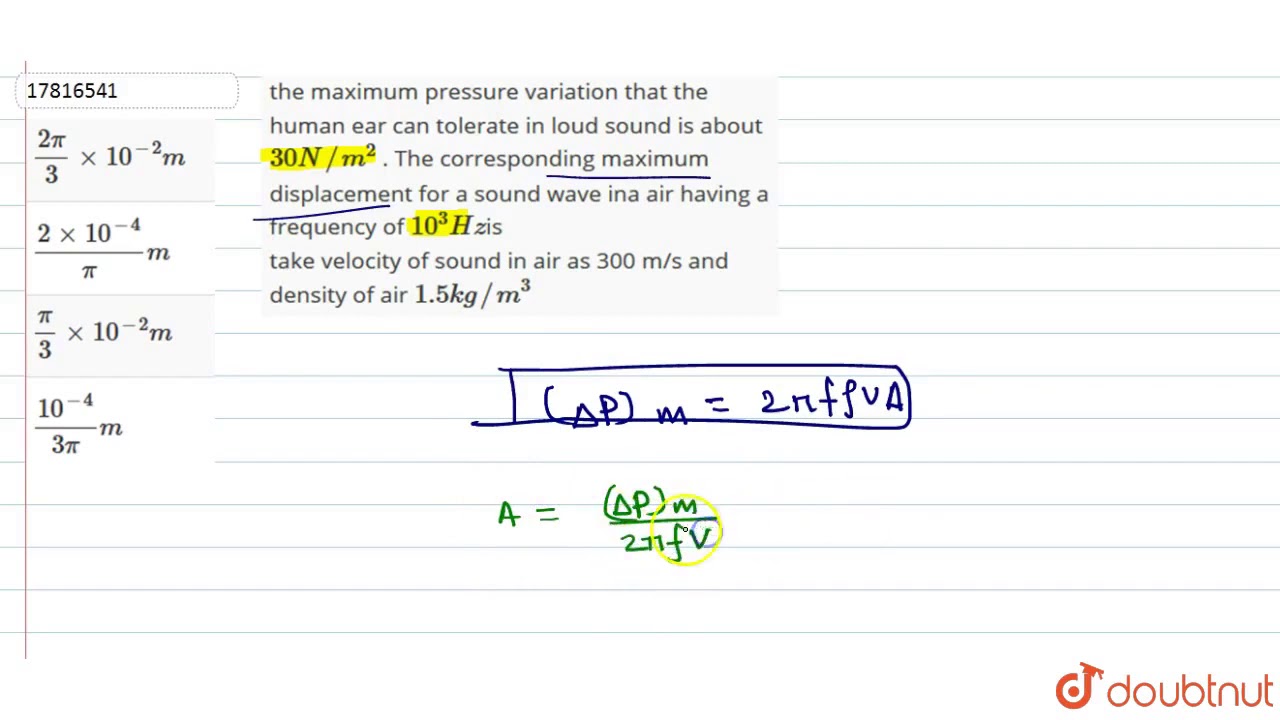 17816541
2π/3 × 10⁻²m
2 × 10⁻⁴/π m
π/3 × 10⁻²m
10⁻⁴/3π m
the maximum pressure variation that the
human ear can tolerate in loud sound is about
30N/m² . The corresponding maximum
displacement for a sound wave ina air having a
frequency of 10³Hzis
take velocity of sound in air as 300 m/s and
density of air 1.5kg/m³
(ΔP) m = 2πfρVA
A = (ΔP)m/2πfV
doubtnut